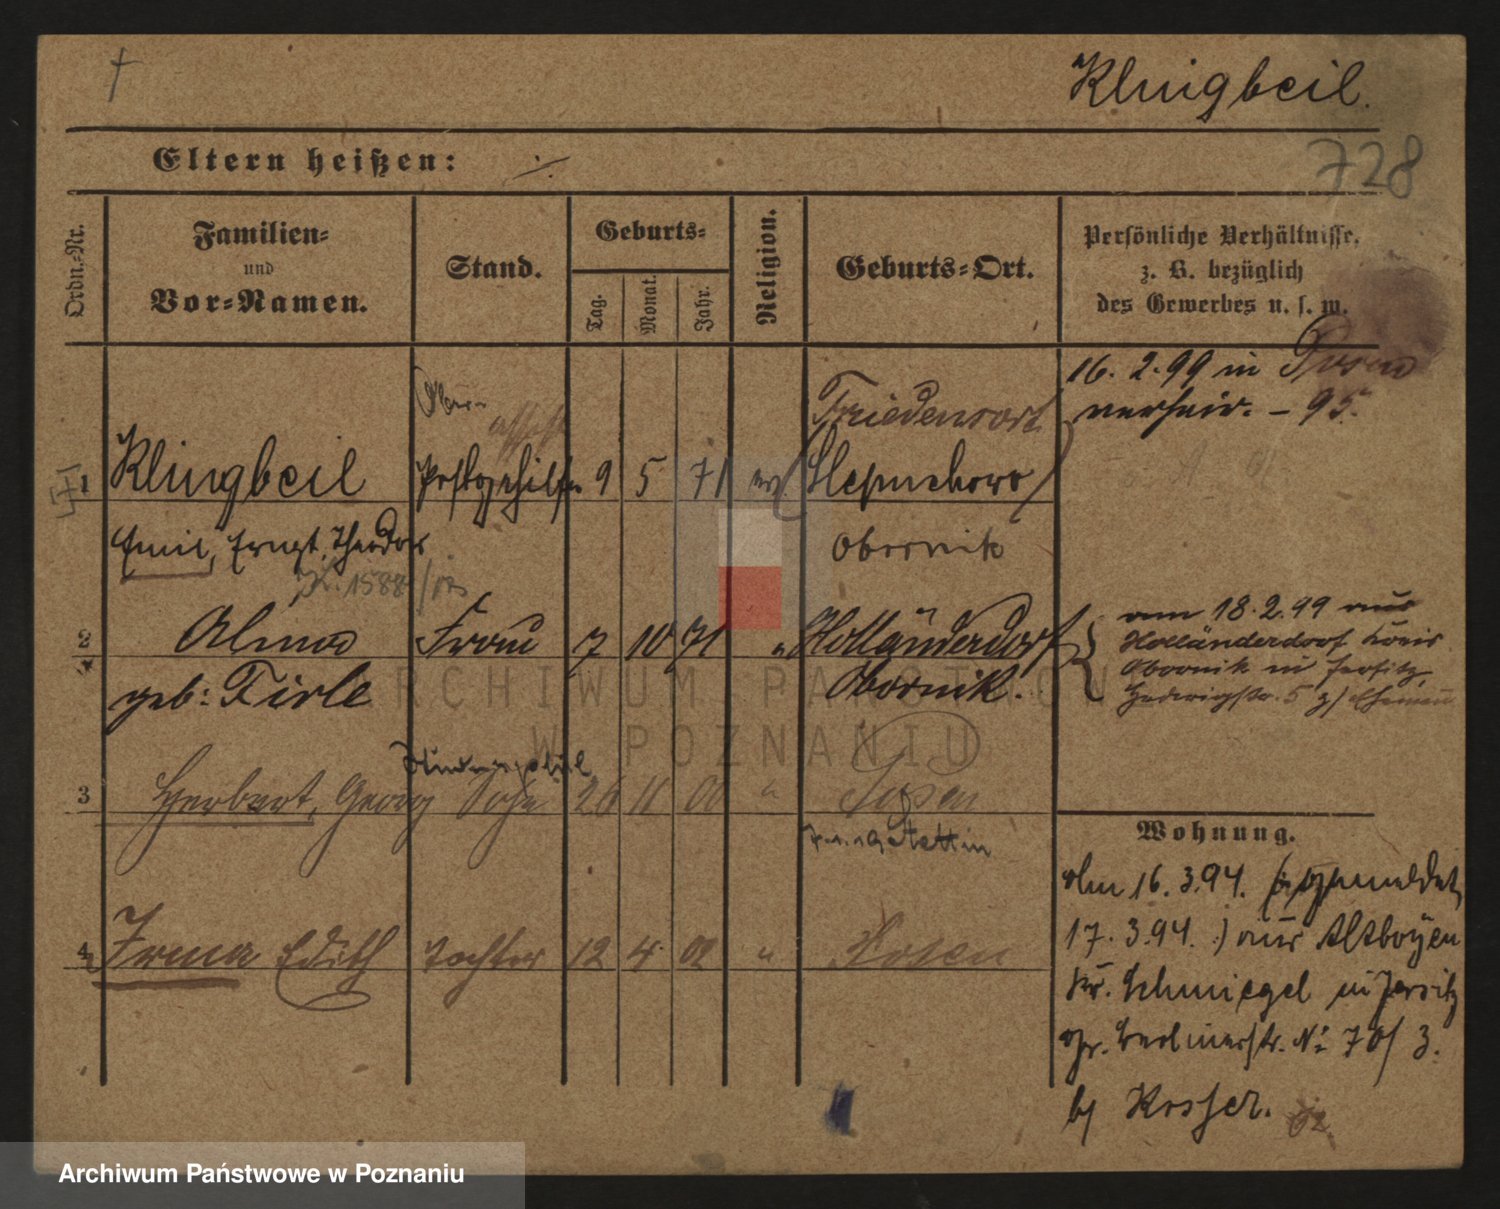 †
Klingbeil.
728
Eltern heißen: ·/·
Ordn.-Nr.
Familien-
und
Vor-Namen.
Stand.
Geburts-
Tag.
Monat.
Jahr.
Religion.
Geburts-Ort.
Persönliche Verhältnisse,
z. B. bezüglich
des Gewerbes u. s. w.
16. 2. 99 in Posen
verheir. – 95.
Ober-
assist
Friedensort
1 Klingbeil Postgehilfe 9 5 71 ev. (Slepuchowo)
Emil, Ernst, Theodor
Obornik
1588
2 Alma Frau 7 10 71 " Holländerdorf
geb: Tirle
Obornik.
am 18. 2. 99 aus
Holländerdorf Kreis
Obornik in Jersitz
Hedwigstr. 5 z/ Ehemann
3 Herbert, Georg Sohn 26 11 00 " Posen
Stettin
4 Irma Edith Tochter 12 4 02 " Posen
Wohnung.
Am 16. 3. 94. (angemeldet
17. 3. 94.) aus Altboyen
Kr. Schmiegel in Jersitz
Berlinerstr. № 70/ 3.
b/
ARCHIWUM PAŃSTWOWE
W POZNANIU
Archiwum Państwowe w Poznaniu